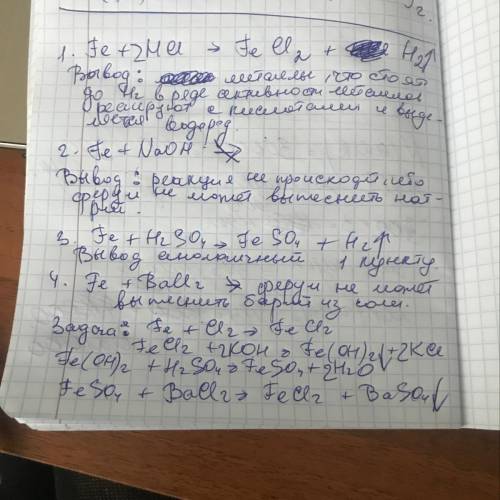 2.
1. Fe + 2HCl → FeCl2 + H2↑
Вывод: металлы что стоят
до H2 в ряде активности металлов
реагируют с кислотами и выде-
ляется водород.
2. Fe + NaOH ↛
Вывод: реакция не происходит, ибо
ферум не может вытеснить нат-
рий.
3. Fe + H2SO4 → FeSO4 + H2↑
Вывод аналогичный 1 пункту.
4. Fe + BaCl2 → ферум не может
вытеснить барий из соли.
Задача: Fe + Cl2 → FeCl2
FeCl2 + 2KOH → Fe(OH)2↓ + 2KCl
Fe(OH)2 + H2SO4 → FeSO4 + 2H2O
FeSO4 + BaCl2 → FeCl2 + BaSO4↓